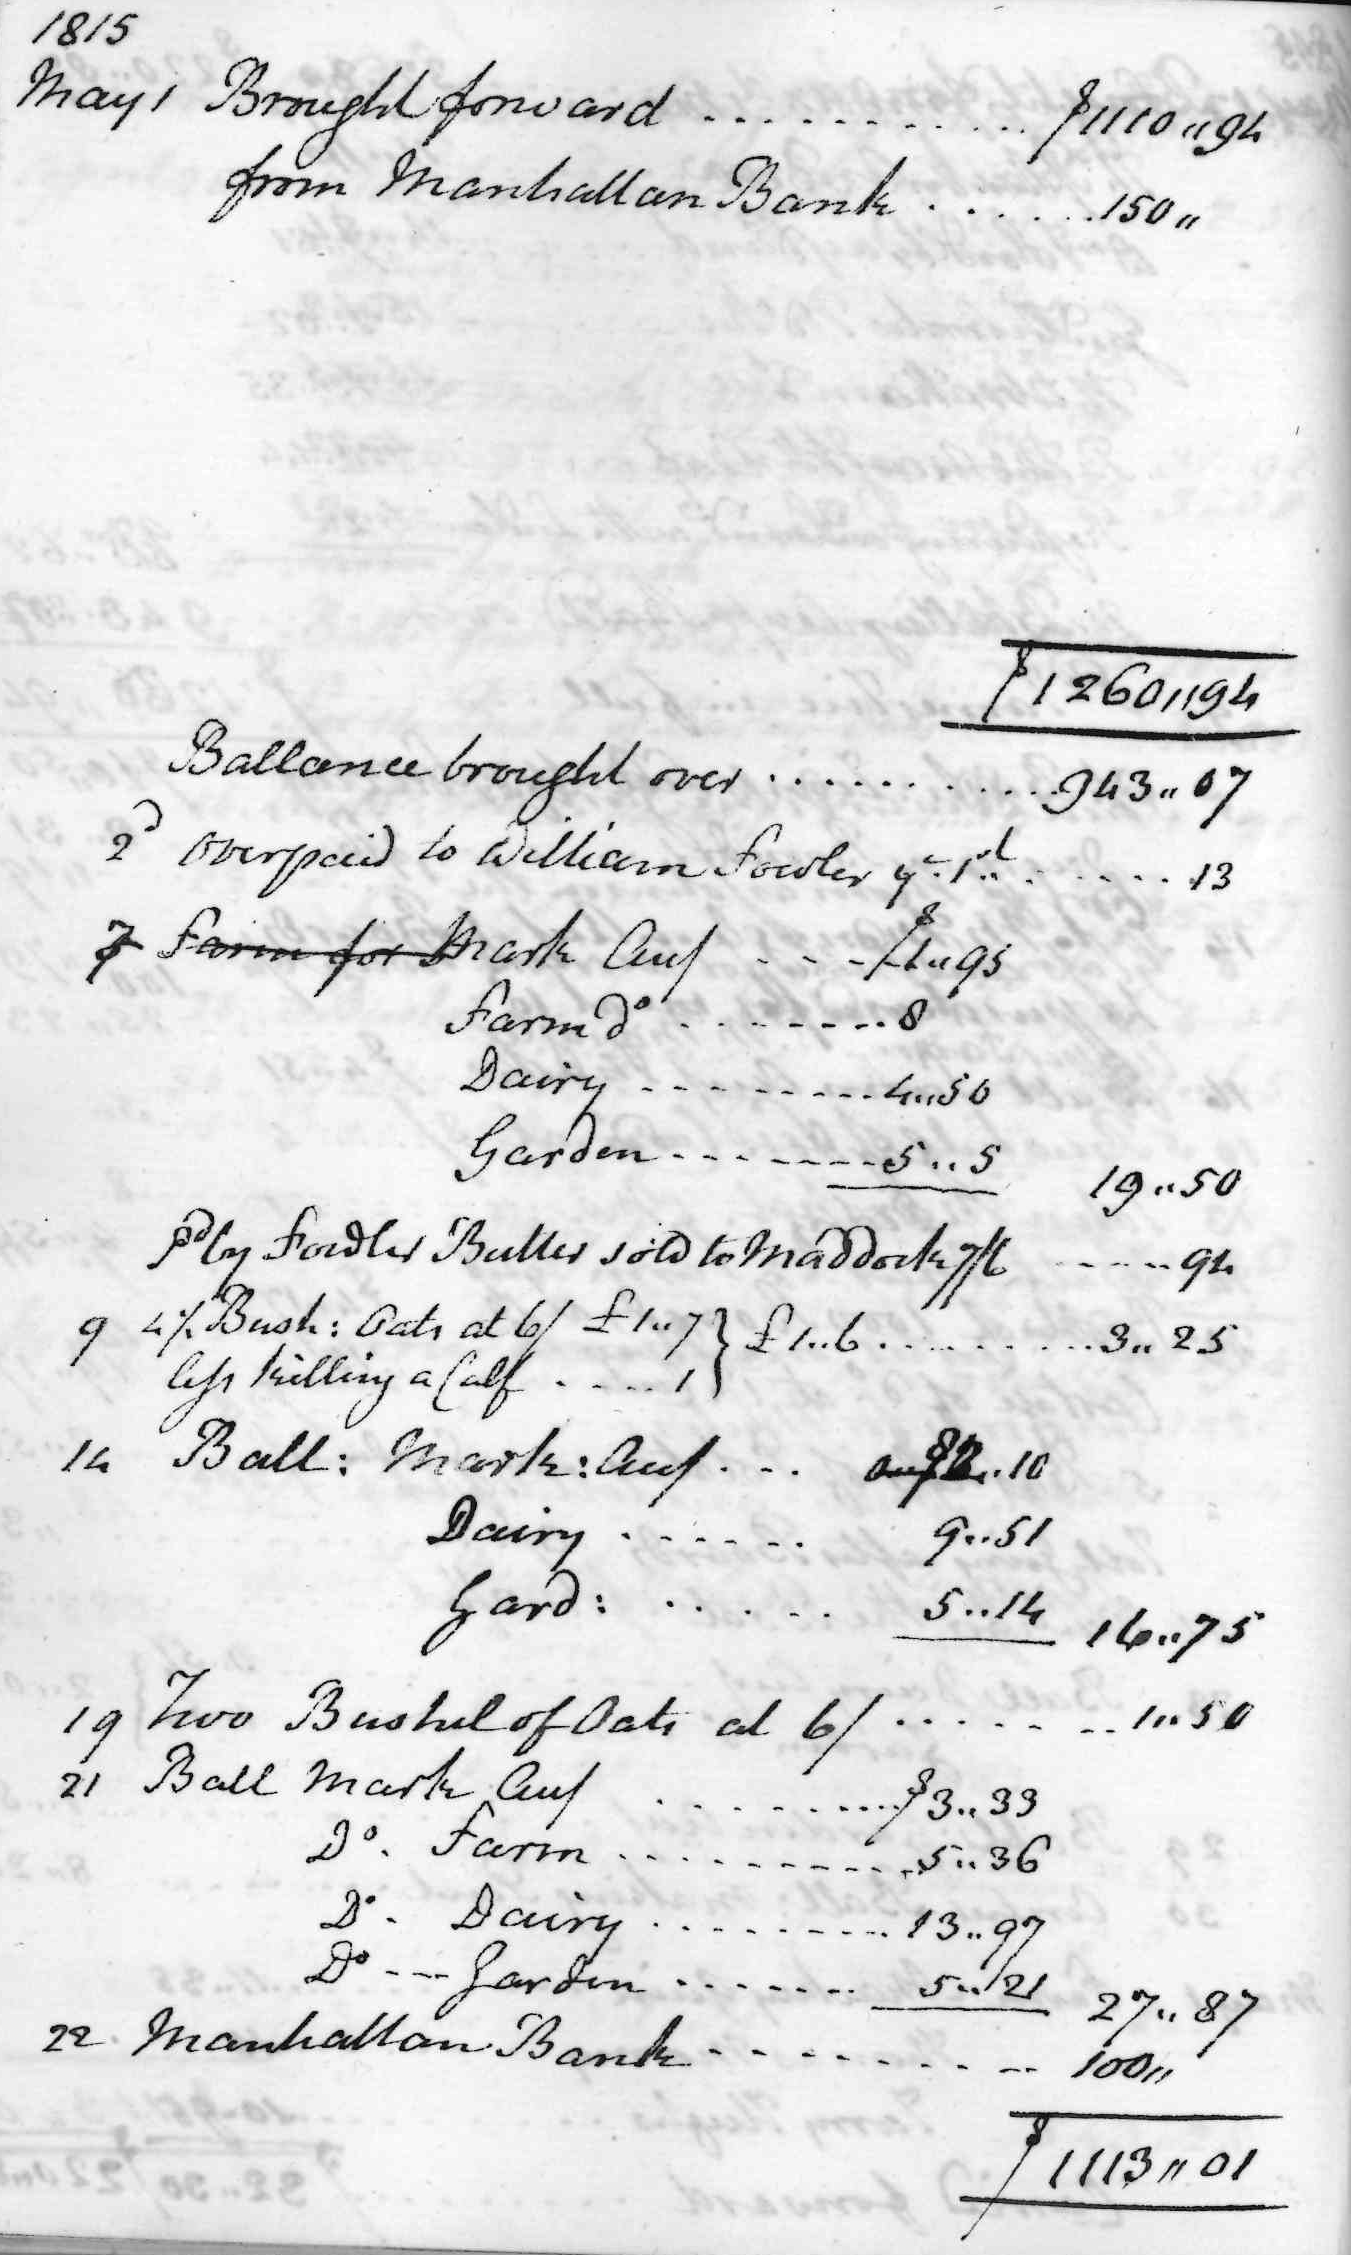 1815
May 1 Brought forward ............ $1110,,94
from Manhattan Bank ....... 150,,
$1260,,94
Ballance brought over ............ 943,,07
2d overpaid to William Fowler ..... 13
7 Farm for Mark Auf .... $1,,95
Farm do ........ 8
Dairy ......... 4,,50
Garden ........ 5,,5 19,,50
pd by Fowler Butter sold to Maddock 7/6 ..... 94
9 4½ Bush: Oats at 6/ £1,,7 } £1,,6 .......... 3,,25
less killing a Calf ..... 1
14 Ball: Mark: Auf .... $2,,10
Dairy ...... 9,,51
Gard: ...... 5,,14 16,,75
19 Two Bushel of Oats at 6/ ........ 1,,50
21 Ball Mark Auf ......... $3,,33
Do. Farm .......... 5,,36
Do. Dairy ......... 13,,97
Do --- Garden ....... 5,,21 27,,87
22 Manhattan Bank ......... 100,,
$1113,,01